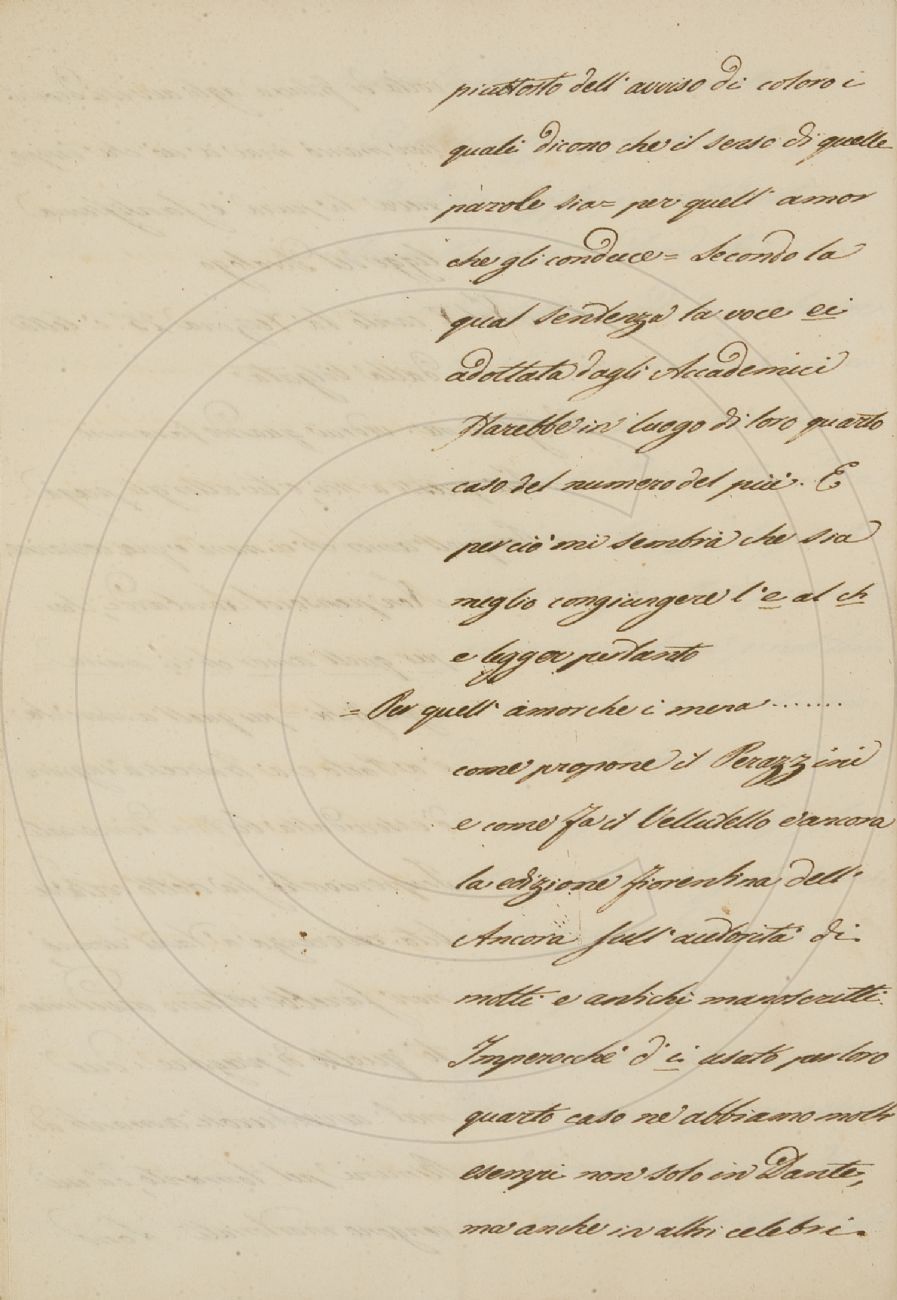 piuttosto dell' avviso di coloro i
quali dicono che il senso di quelle
parole sia = per quell' amor
che gli conduce = Secondo la
qual sentenza la voce ei
adottata dagli Accademici
starebbe in luogo di loro quarto
caso del numero del più. E
perciò mi sembra che sia
meglio congiungere l' e al ch
e legger pertanto
= Per quell' amor che i mena .......
come propone il Perazzini
e come fa il Vellutello e ancora
la edizione fiorentina dell'
Ancora sull' autorità di
molti e antichi manoscritti.
Imperocchè d' i usato per loro
quarto caso ne abbiamo molti
esempi non solo in Dante,
ma anche in altri celebri